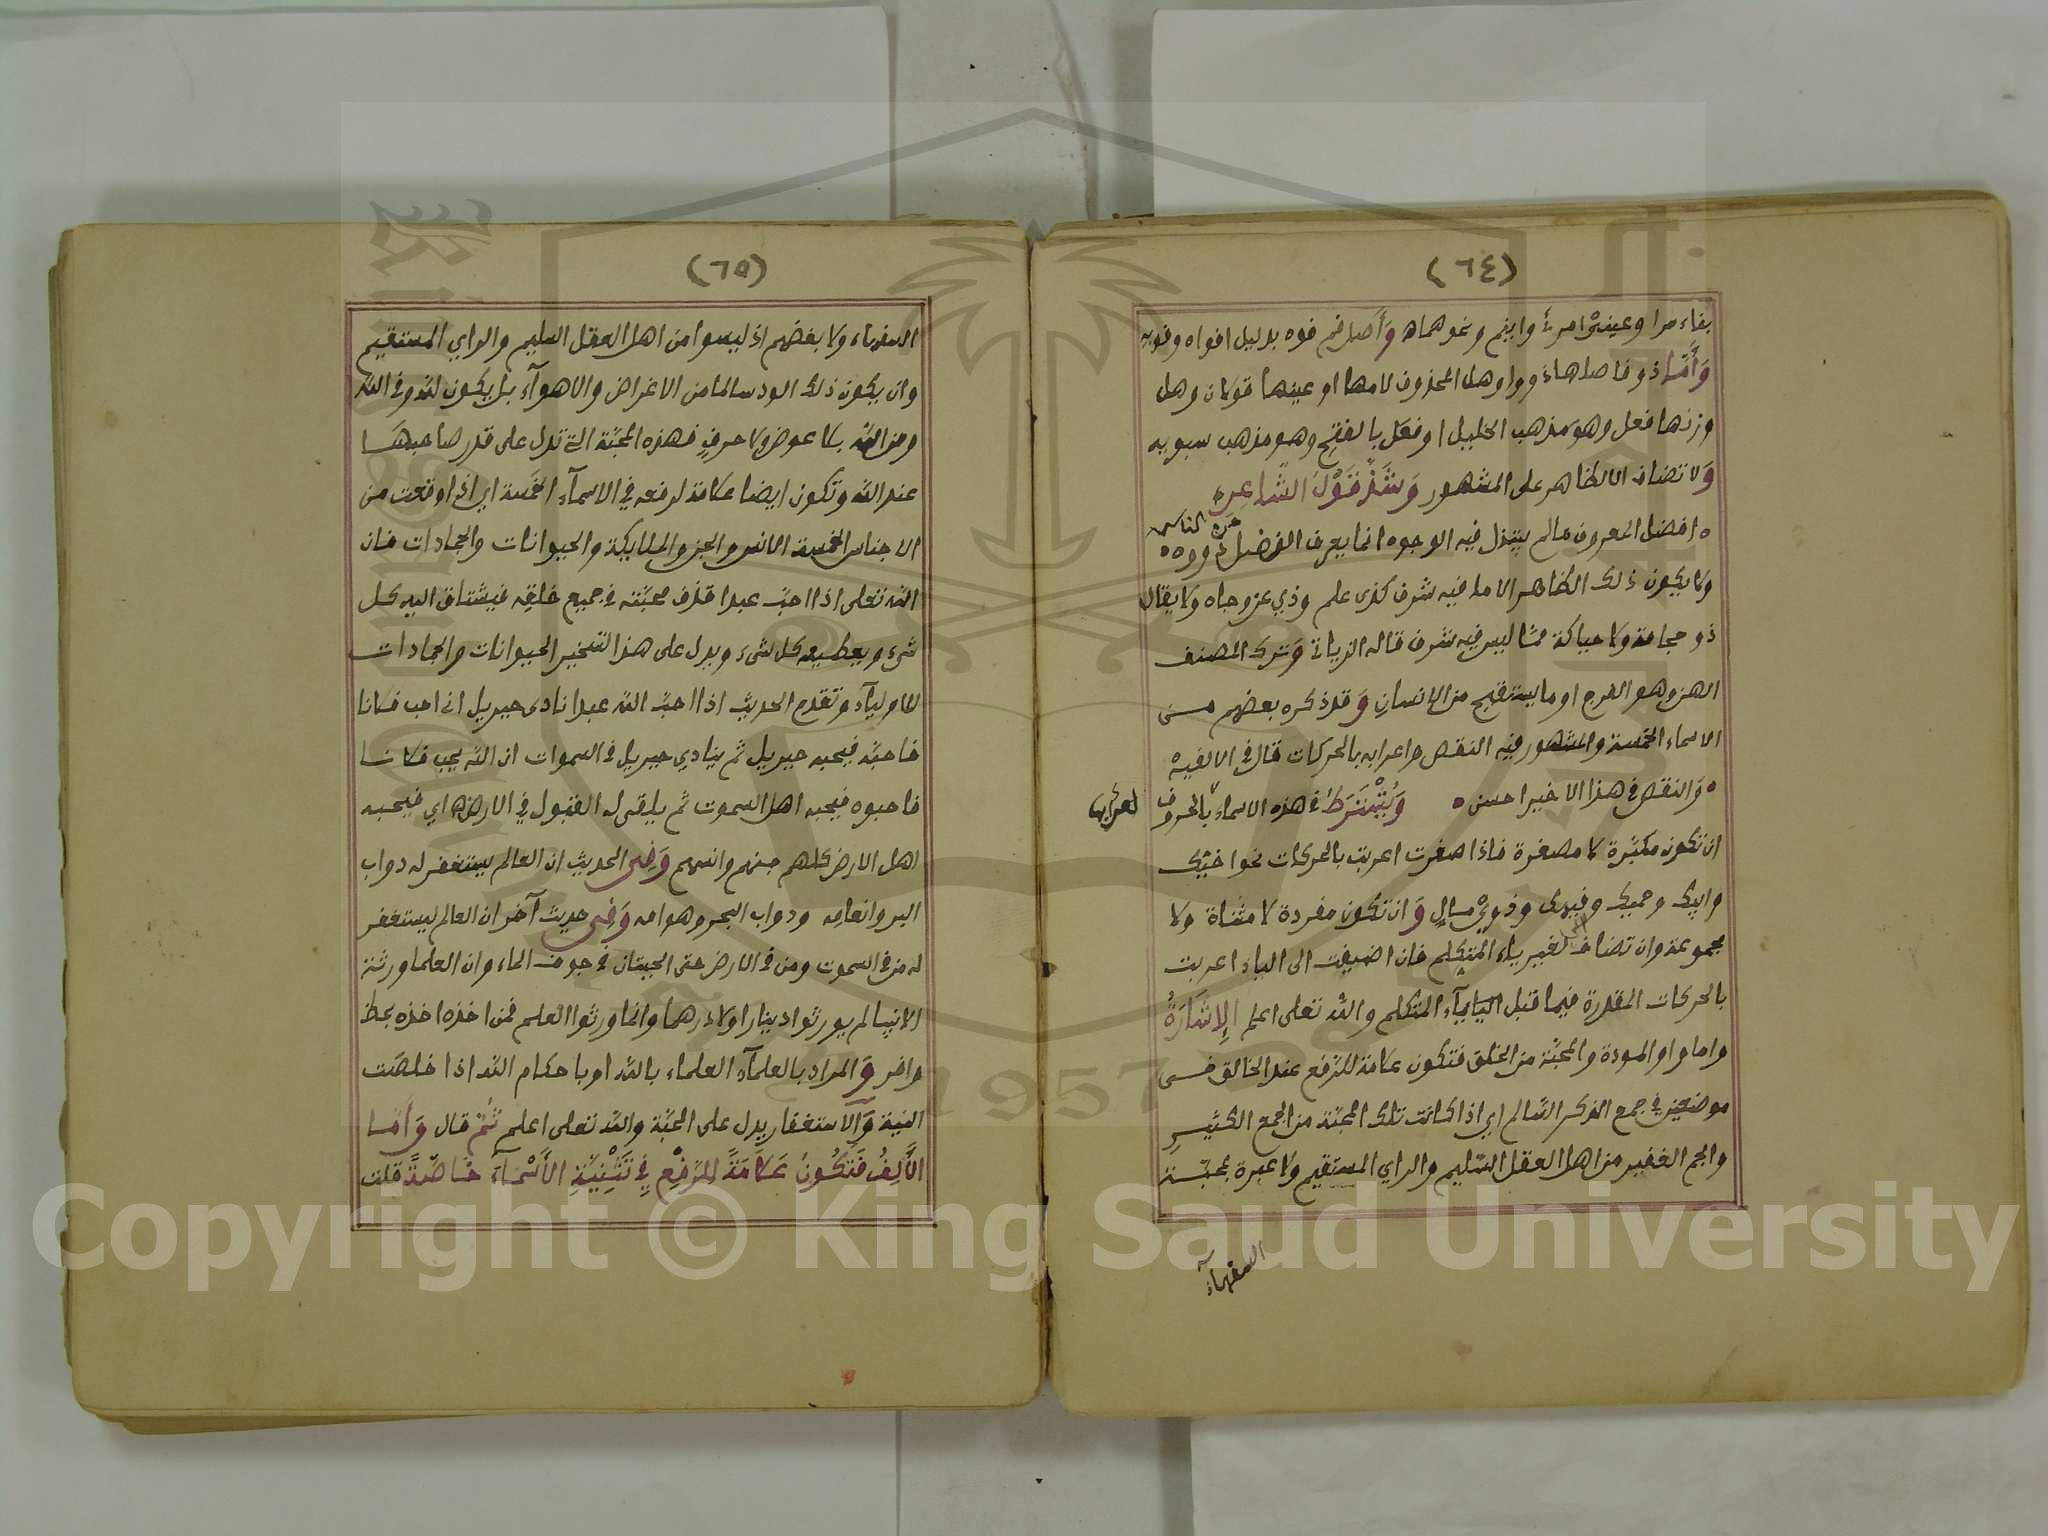 (٦٤)
بفاء مرا وعينى امرئ وابنم ونحوهماه وأصل فم فوه بدليل افواه وفويه
وأما ذو فاصلها ذووا وهل المحذوف لامها او عينها قولان وهل
وزنها فعل وهو مذهب الخليل او فعل بالفتح وهو مذهب سبويه
ولا تضاف الا لظاهر على المشهور وشذ قول الشاعر
افضل المعروف مالم يبتذل فيه الوجوه انما يعرف الفضل من الناس ذووه
ولا يكون ذلك الظاهر الا ما فيه شرف كذى علم وذي عز وجاه ولا يقال
ذو حجامة ولا حياكة مما ليس فيه شرف قاله الرياني وترك المصنف
الهن وهو الفرج او ما يستقبح من الانسان وقد ذكره بعضهم من
الاسماء الخمسة والمشهور فيه النقص واعرابه بالحركات قال في الالفية
والنقص في هذا الاخير احسن ويشترط في هذه الاسماء بالحروف
اعرابها
ان تكون مكبرة لا مصغرة فاذا صغرت اعربت بالحركات نحو اخيك
وابيك وحميك وفيهك وذوي مال وان تكون مفردة لا مثناة ولا
مجموعة وان تضاف لغير ياء المتكلم فان اضيفت الى الياء اعربت
بالحركات المقدرة فيما قبل ياء المتكلم والله تعلى اعلم الإشارة
واما واو المودة والمحبة من الخلق فتكون علامة للرفع عند الخالق فى
موضعين في جمع الذكر السالم اي اذا كانت تلك المحبة من الجمع الكثير
والجم الغفير من اهل العقل السليم والراي المستقيم ولا عبرة بمحبة
السفهاء
(٦٥)
السفهاء ولا بغضهم اذ ليسوا من اهل العقل السليم والراي المستقيم
وان يكون ذلك الود سالما من الاغراض والاهوآء بل يكون لله وفى الله
ومن الله بلا عوض ولا حرف فهذه المحبة التى تدل على قدر صاحبها
عند الله وتكون ايضا علامة لرفعه في الاسمآء الخمسة اي اذا وقعت من
الاجناس الخمسة الانس والجن والملايكة والحيوانات والجمادات فان
الله تعلى اذا احب عبدا قذف محبته في جميع خلقه فيشتاق اليه كل
شىء ويطيعه كل شىء ويدل على هذا تسخير الحيوانات والجمادات
للاوليآء وتقدم الحديث اذا احب الله عبدا نادى جبريل انى احب فلانا
فاحبه فيحبه جبريل ثم ينادي جبريل فى السموات ان الله يحب فلانا
فاحبوه فيحبه اهل السموت ثم يلقى له القبول في الارض اي فيحبه
اهل الارض كلهم جنهم وانسهم وفى الحديث ان العالم يستغفر له دواب
البر وانعامه ودواب البحر وهوامه وفى حديث آخر ان العالم ليستغفر
له من فى السموت ومن فى الارض حتى الحيتان في جوف الماء وان العلما ورثة
الانبيا لم يورثوا دينارا ولا درهما وانما ورثوا العلم فمن اخذه اخذه بحظ
وافر والمراد بالعلمآء العلماء بالله او باحكام الله اذا خلصت
النية والاستغفار يدل على المحبة والله تعلى اعلم ثم قال وأما
الألف فتكون علامة للرفع في تثنية الأسمآء خاصة قلت
Copyright © King Saud University
1957